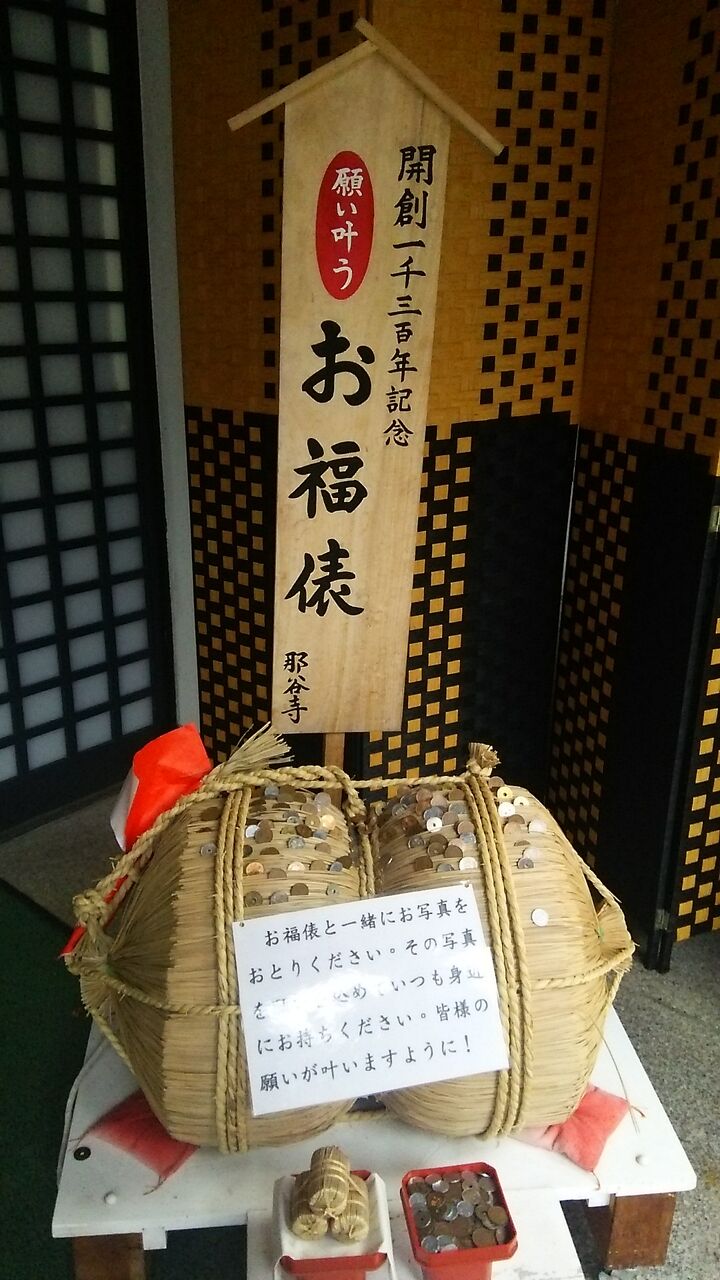 開創一千三百年記念
願い叶う
お福俵
那谷寺
お福俵と一緒にお写真を
おとりください。その写真
を めていつも身近
にお持ちください。皆様の
願いが叶いますように!